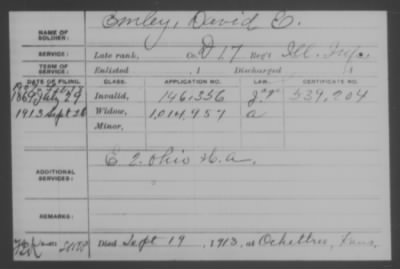 NAME OF SOLDIER: Emley, David C.
SERVICE: Late rank, Co. D 17 Reg't Ill. Inf.
TERM OF SERVICE: Enlisted , 1 Discharged , 1
DATE OF FILING. CLASS. APPLICATION NO. LAW. CERTIFICATE NO.
1869 July 29 Invalid, 146,356 539,204
1913 Sept 26 Widow, 1,014,957 a
Minor,
ADDITIONAL SERVICES: E 2. Ohio H.A.
REMARKS:
Died Sept 19, 1913, at Ocheltree, Kans.